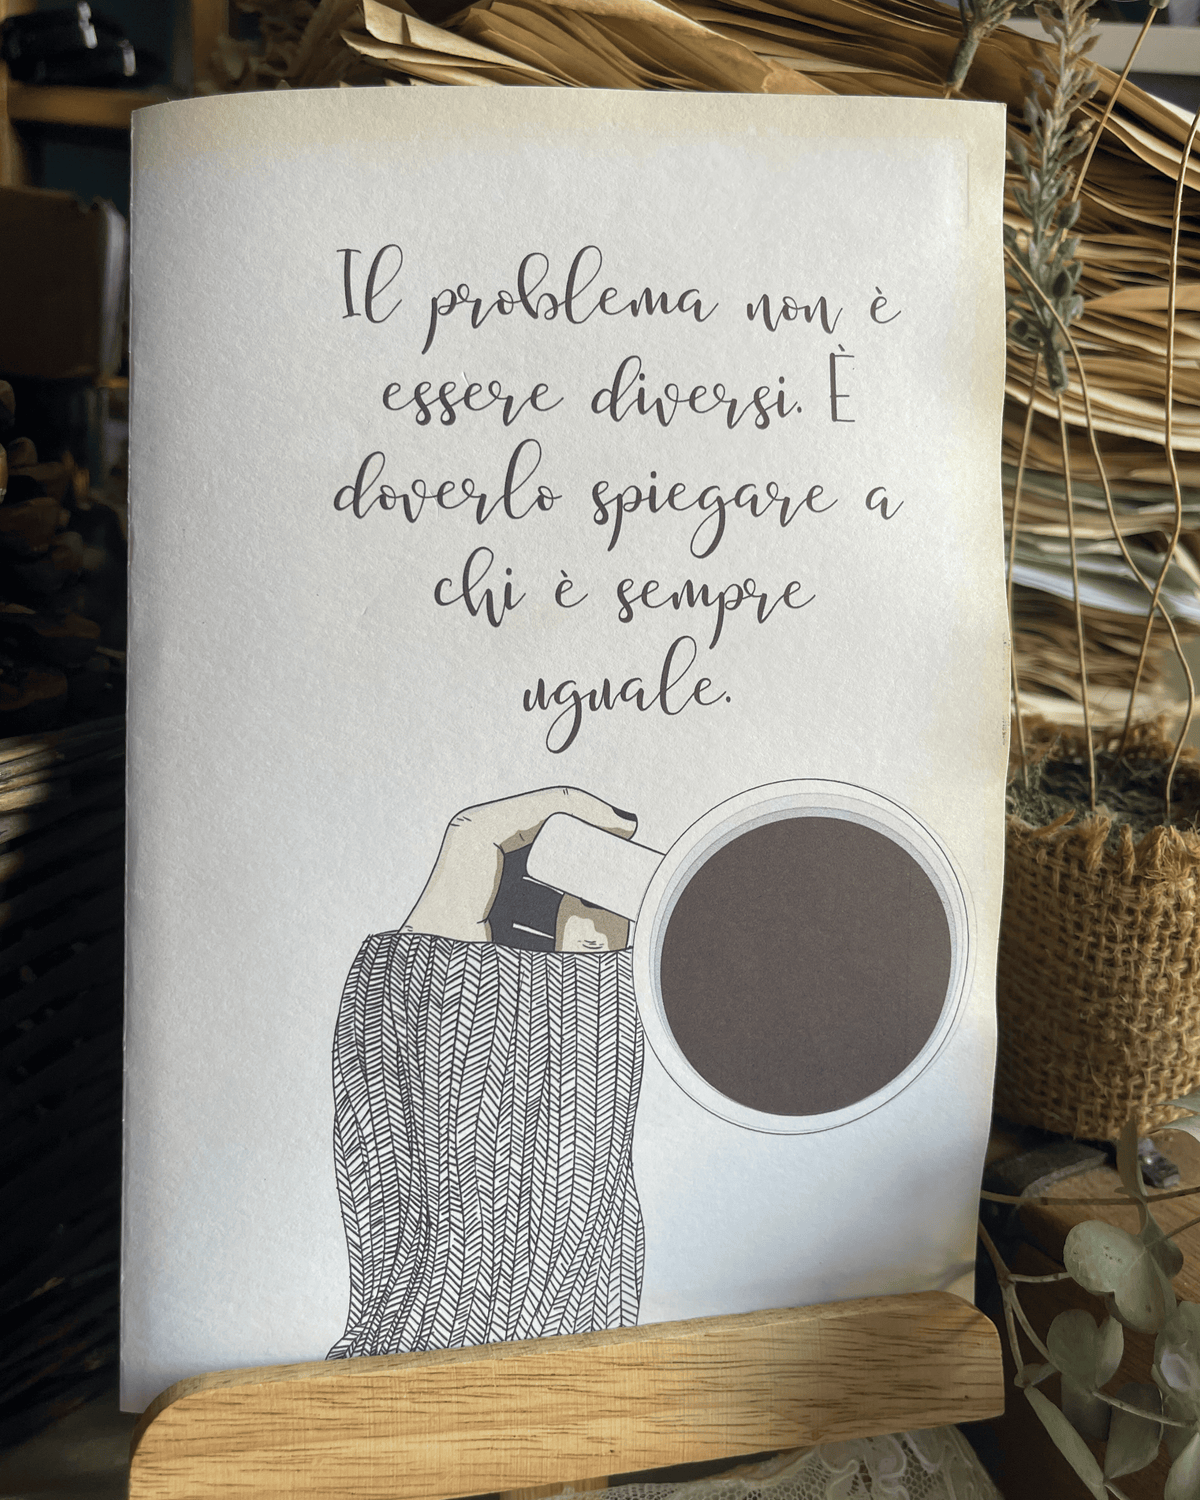 Il problema non è
essere diversi. È
doverlo spiegare a
chi è sempre
uguale.